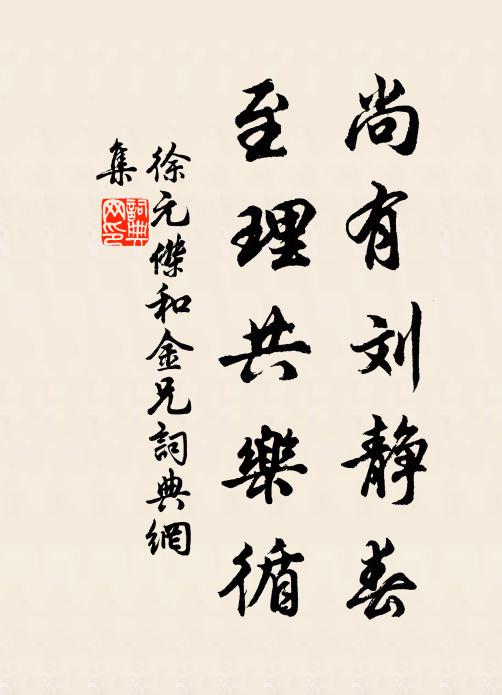 尚有刘静春
至理共樂循
徐元傑和金兄詞典網
集
詞典网印